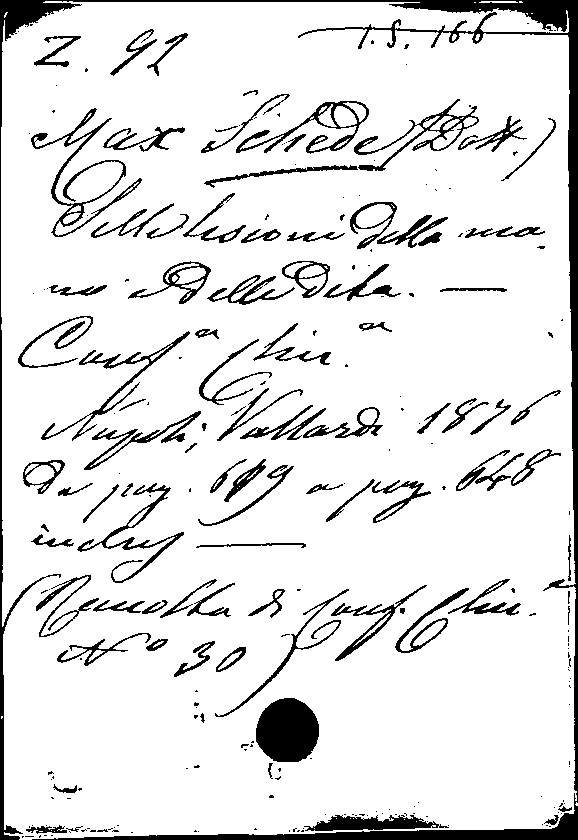 Z. 92
1. S. 166
Max Schede (Dott.)
Sulle lesioni della ma-
no e delle dita. —
Conf.a Chir.a
Napoli, Vallardi 1876
Da pag. 619 a pag. 648
inclus —
(Raccolta di Conf. Chir.e
No 30)